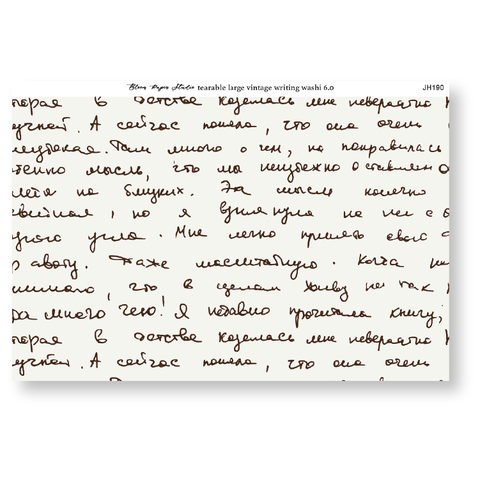 Bloom Paper Studio tearable large vintage writing washi 6.0 JH190
торая в детстве казалась мне невероятно
скучной. А сейчас поняла, что она очень
глубокая. Там много о чем, но понравилась
мысль, что мы неизбежно оставляем
на близких. Эта мысль конечно
, но я взглянула на нее с
другого угла. Мне легко принять свою
работу. Даже масштабную. Когда
, что в сделан живу не так
да много чего! Я недавно прочитала книгу,
торая в детстве казалась мне невероятно
скучной. А сейчас поняла, что она очень